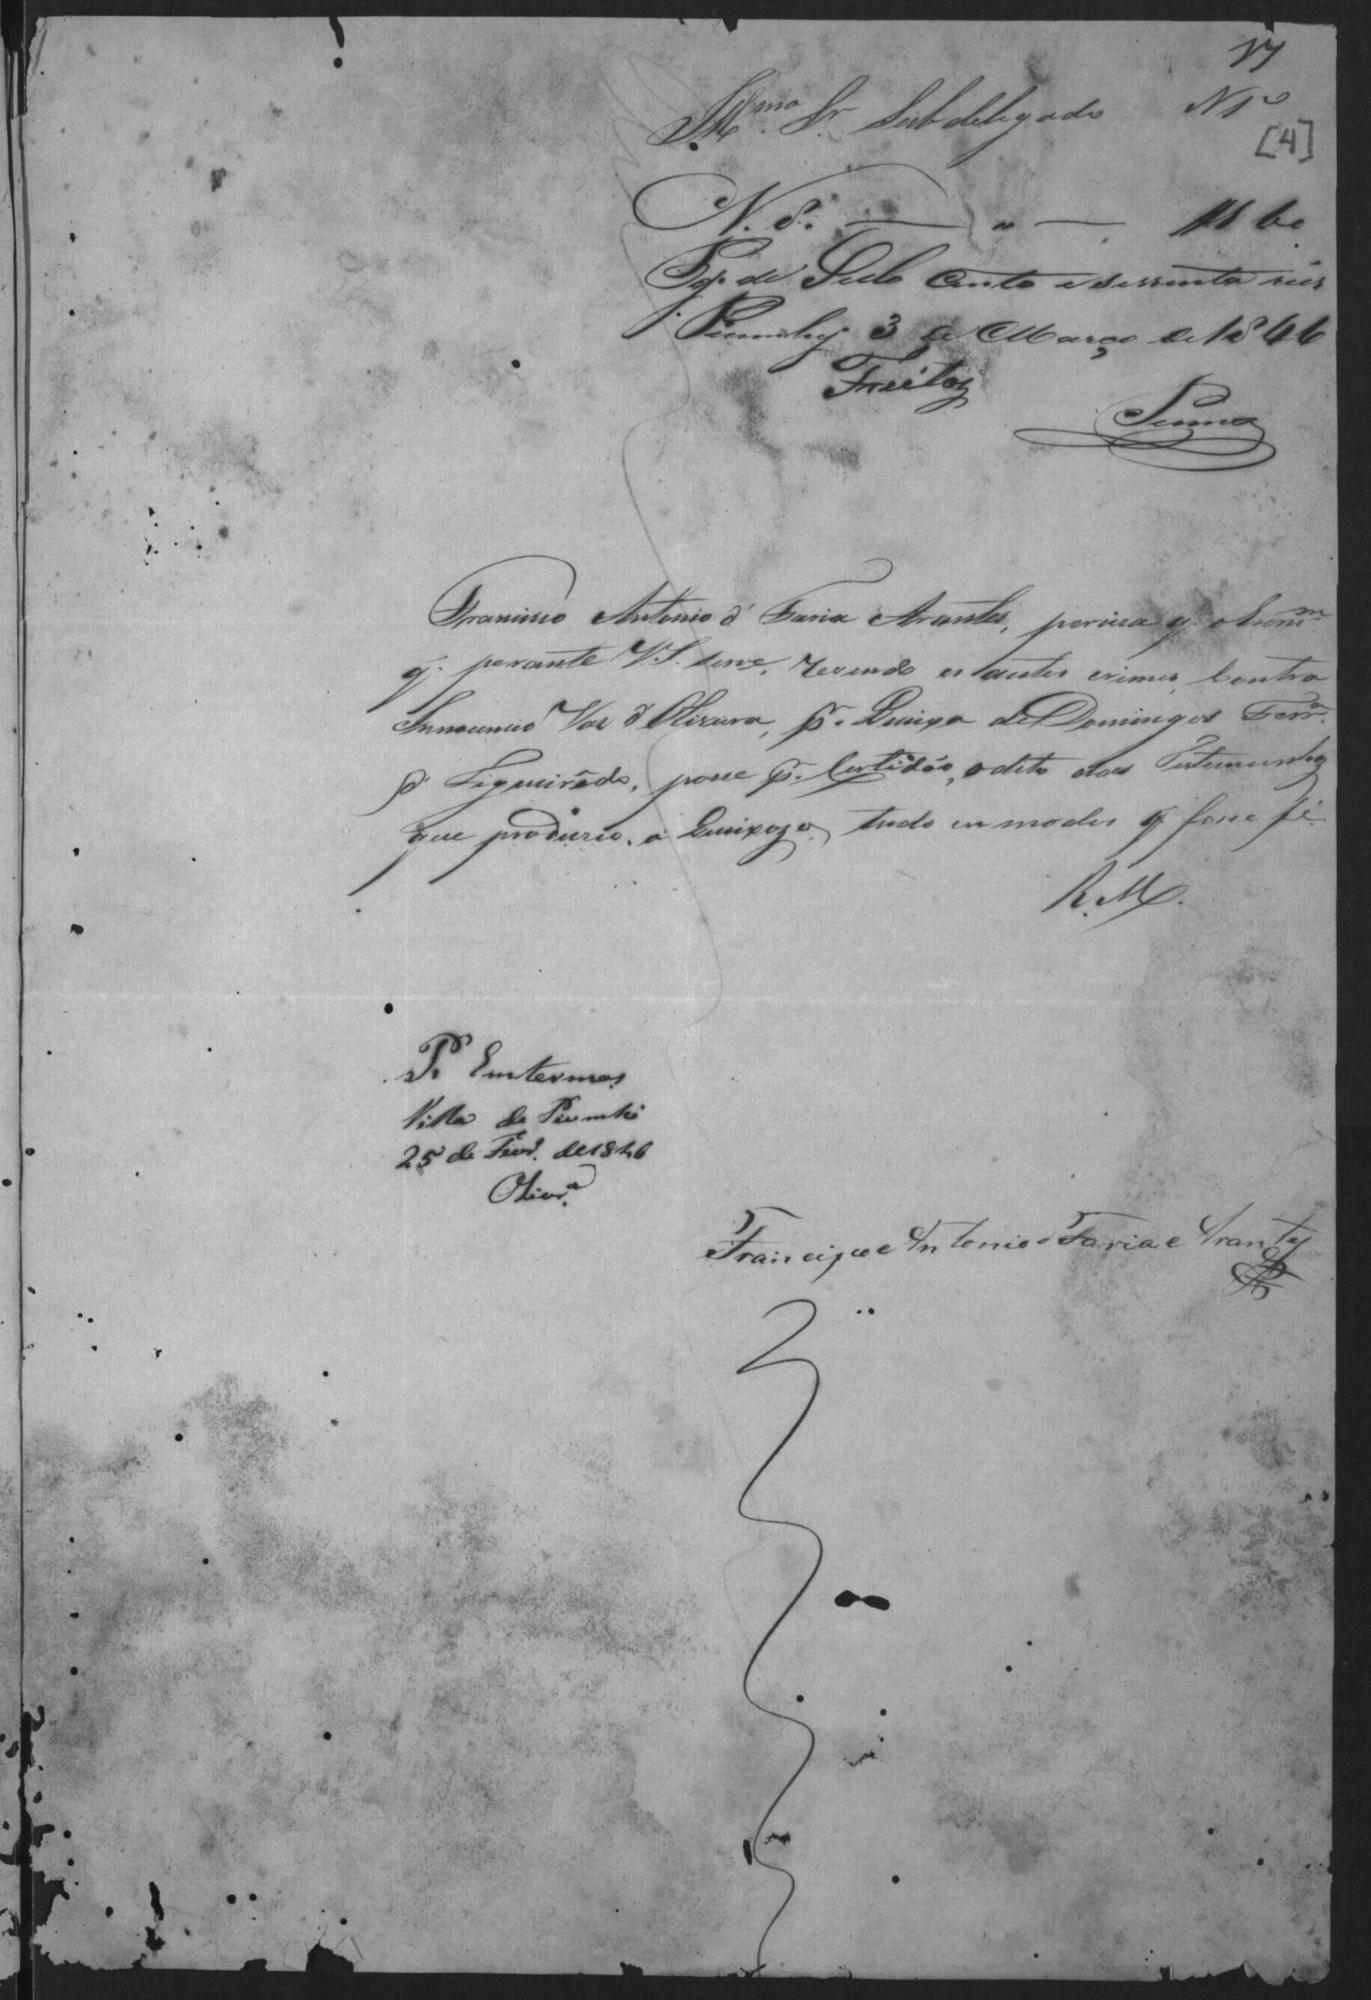 17
Illmo. Sr. Subdelegado N 1º
[4]
N. 8. — " — 160
Pg. de Sello cento e sessenta reis
Piumhy 3 de Março de 1846
Freitas
Senna
Francisco Antonio d' Faria Arantes, perciza q. o Escrm.
q. perante V.S. serve, revendo os autos crimes, Contra
Innocencio Vaz d' Olivera, pr. Queixa de Domingos Ferr.ª
d' Figueirêdo, passe pr. Certidão, o dito das Testemunhas
que produzio, o Queixozo, tudo em modos q fasse fé.
R. M.
P. Em termos
Villa de Piumhi
25 de Fevr. de 1846
Olivr.ª
Francisco Antonio d Faria e Arantes